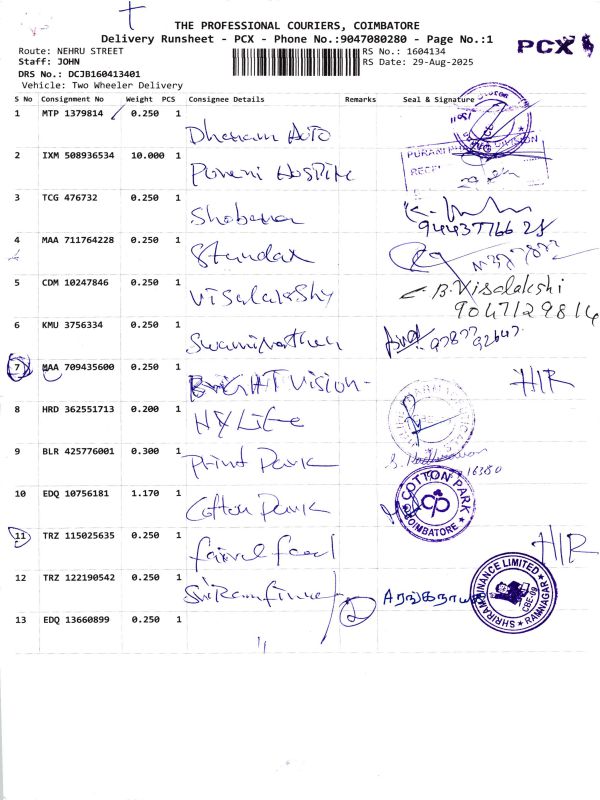 THE PROFESSIONAL COURIERS, COIMBATORE
Delivery Runsheet - PCX - Phone No.:9047080280 - Page No.:1
PCX
Route: NEHRU STREET
RS No.: 1604134
Staff: JOHN
RS Date: 29-Aug-2025
DRS No.: DCJB160413401
Vehicle: Two Wheeler Delivery
S No Consignment No Weight PCS Consignee Details Remarks Seal & Signature
1 MTP 1379814 0.250 1 Dhanam Auto
2 IXM 508936534 10.000 1 Purani Hospital
3 TCG 476732 0.250 1 Shobana
9443776628
4 MAA 711764228 0.250 1 Standax
5 CDM 10247846 0.250 1 Visalakshy B. Visalakshi
9047129816
6 KMU 3756334 0.250 1 Swaminathan
7 MAA 709435600 0.250 1 BRIGHT Vision - H/R
8 HRD 362551713 0.200 1 HY Life
9 BLR 425776001 0.300 1 Print Park
16380
10 EDQ 10756181 1.170 1 Cotton Park COTTON PARK COIMBATORE
11 TRZ 115025635 0.250 1 H/R
12 TRZ 122190542 0.250 1 SriRam finance 2 SHRIRAM FINANCE LIMITED CBE-09 RAMNAGAR
13 EDQ 13660899 0.250 1 "